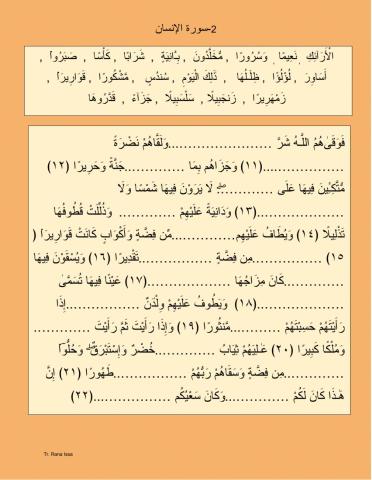 2-سورة الإنسان
الْأَرَائِكِ , نَعِيمًا , وَسُرُورًا , مُّخَلَّدُونَ , بِـَٔانِيَةٍ , شَرَابًا , كَأْسًا , صَبَرُوا۟ ,
أَسَاوِرَ , لُؤْلُؤًا , ظِلَـٰلُهَا , ذَٰلِكَ الْيَوْمِ , سُندُسٍ , مَّشْكُورًا , قَوَارِيرَا۟ ,
زَمْهَرِيرًا , زَنجَبِيلًا , سَلْسَبِيلًا , جَزَاءً , قَدَّرُوهَا
فَوَقَىٰهُمُ اللَّـهُ شَرَّ ........................وَلَقَّاهُمْ نَضْرَةً
....................(١١) وَجَزَاهُم بِمَا ............جَنَّةً وَحَرِيرًا (١٢)
مُّتَّكِئِينَ فِيهَا عَلَى ............ۖ لَا يَرَوْنَ فِيهَا شَمْسًا وَلَا
....................(١٣) وَدَانِيَةً عَلَيْهِمْ ............. وَذُلِّلَتْ قُطُوفُهَا
تَذْلِيلًا (١٤) وَيُطَافُ عَلَيْهِم...............مِّن فِضَّةٍ وَأَكْوَابٍ كَانَتْ قَوَارِيرَا۠ (
١٥) ................مِن فِضَّةٍ .................تَقْدِيرًا (١٦) وَيُسْقَوْنَ فِيهَا
................كَانَ مِزَاجُهَا ...................(١٧) عَيْنًا فِيهَا تُسَمَّىٰ
....................(١٨) وَيَطُوفُ عَلَيْهِمْ وِلْدَٰنٌ...............إِذَا
رَأَيْتَهُمْ حَسِبْتَهُمْ ............مَّنثُورًا (١٩) وَإِذَا رَأَيْتَ ثَمَّ رَأَيْتَ ..............
وَمُلْكًا كَبِيرًا (٢٠) عَـٰلِيَهُمْ ثِيَابُ ...............خُضْرٌ وَإِسْتَبْرَقٌ ۖ وَحُلُّوٓا۟
................مِن فِضَّةٍ وَسَقَاهُمْ رَبُّهُمْ ................طَهُورًا (٢١) إِنَّ
هَـٰذَا كَانَ لَكُمْ ................وَكَانَ سَعْيُكُم .................(٢٢)
Tr. Rana Issa